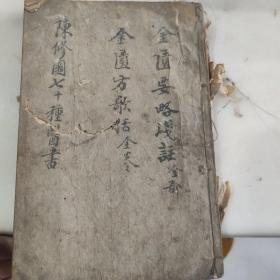 金匱要略淺註全部
金匱方歌括全卷
陳修園七十種醫書